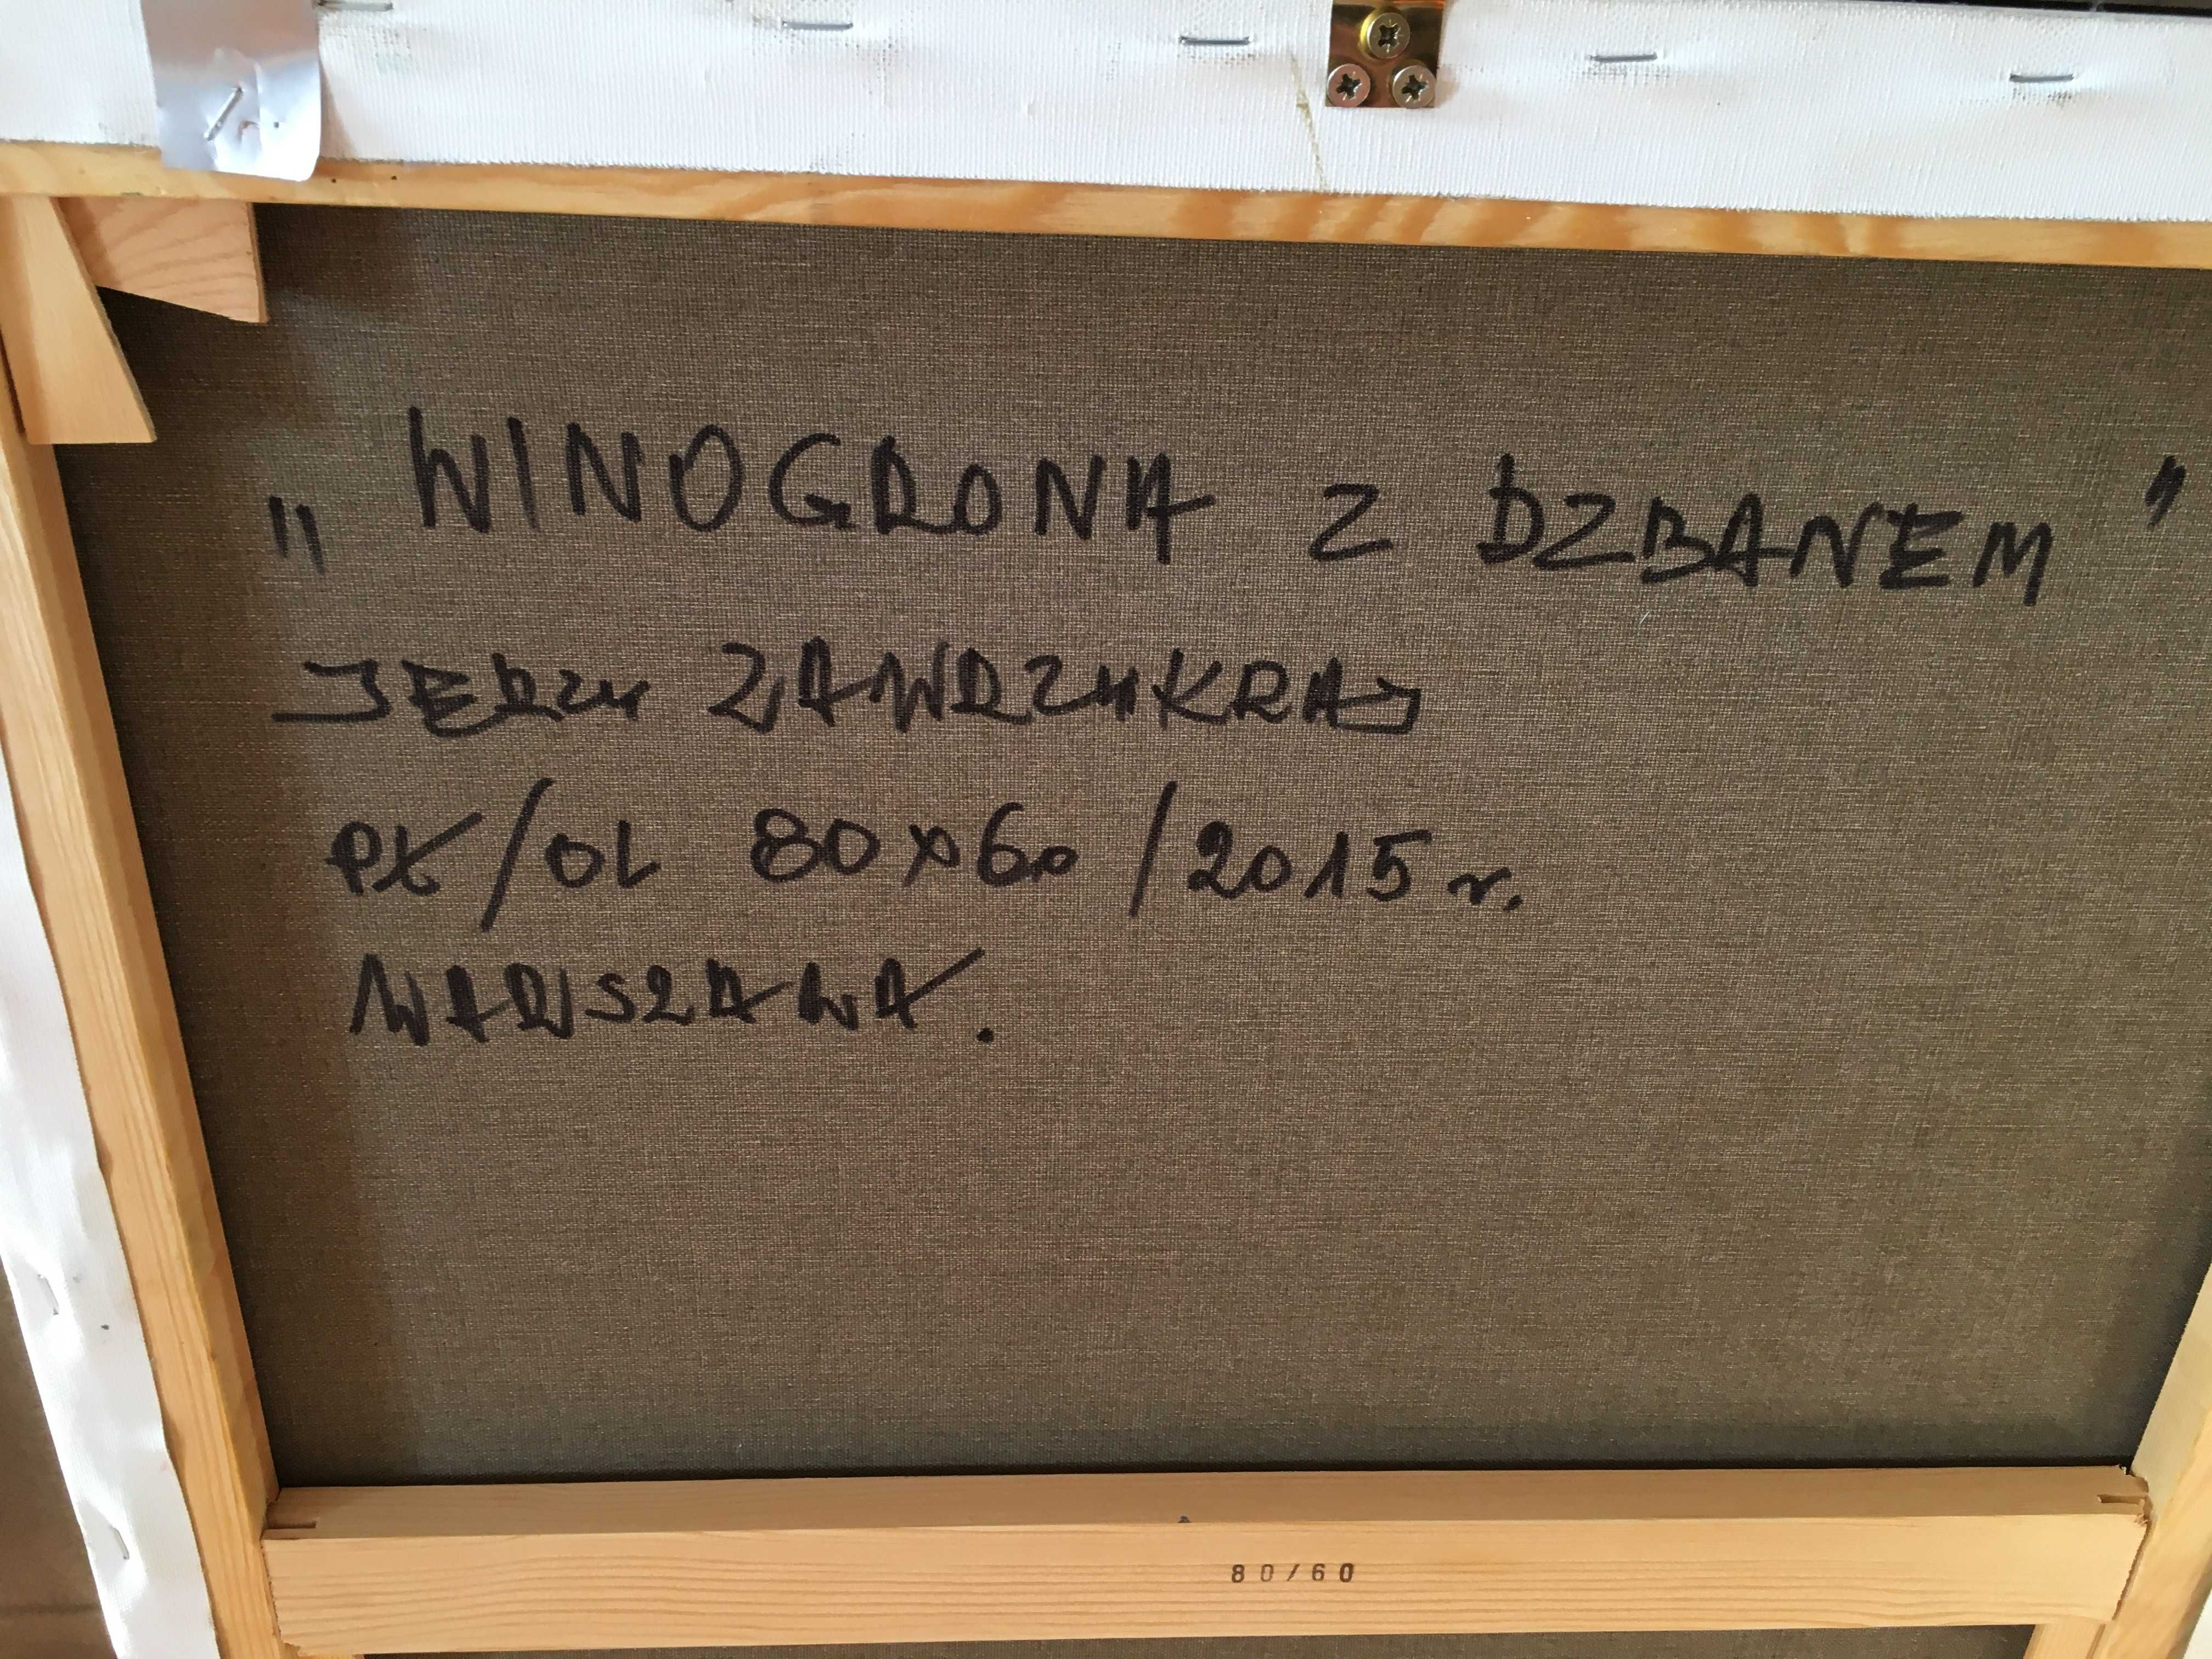 „WINOGRONA Z DZBANEM"
JERZY ZAWRZYKRAJ
PŁ/OL 80x60/2015 r.
WARSZAWA.
80/60